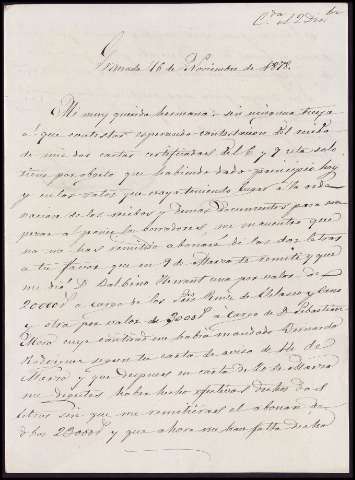 C.da el 2 Dic.bre
Granada 16 de Noviembre de 1878.
Mi muy querida hermana: sin ninguna tuya
a que contestar esperando contestacion del recibo
de mis dos cartas certificadas del 6 y 9 esta solo
tiene por objeto que habiendo dado principio hoy
y en los ratos que vaya teniendo lugar a la orde
nacion de los recibos y demas documentos para em
pezar a poner los borradores, me encuentro que
no me has remitido abonaré de las dos letras
a tu favor que en 9 de Marzo te remití y que
me dió D. Balbino una por valor de
20000 a cargo de los Sres Ruiz de Velasco y
y otra por valor de 3000 a cargo de D. Sebastian
Mora cuya cantidad me habia mandado Bernardo
Rodriguez segun tu carta de aviso de 14 de
Marzo y que despues en carta de 16 de Marzo
me dijistes haber hecho efectivas dichas dos
letras sin que me remitieras el abonaré de
dchos 23000 y que ahora me hace falta dicho